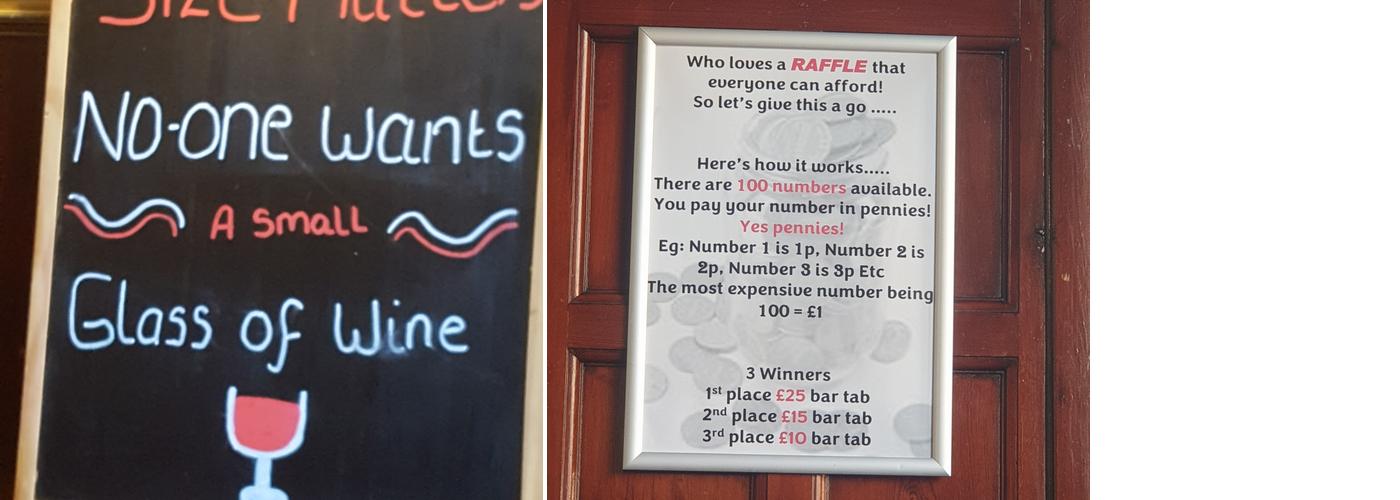 Size Matters
No-one wants
A small
Glass of Wine
Who loves a RAFFLE that
everyone can afford!
So let's give this a go .....
Here's how it works.....
There are 100 numbers available.
You pay your number in pennies!
Yes pennies!
Eg: Number 1 is 1p, Number 2 is
2p, Number 3 is 3p Etc
The most expensive number being
100 = £1
3 Winners
1st place £25 bar tab
2nd place £15 bar tab
3rd place £10 bar tab